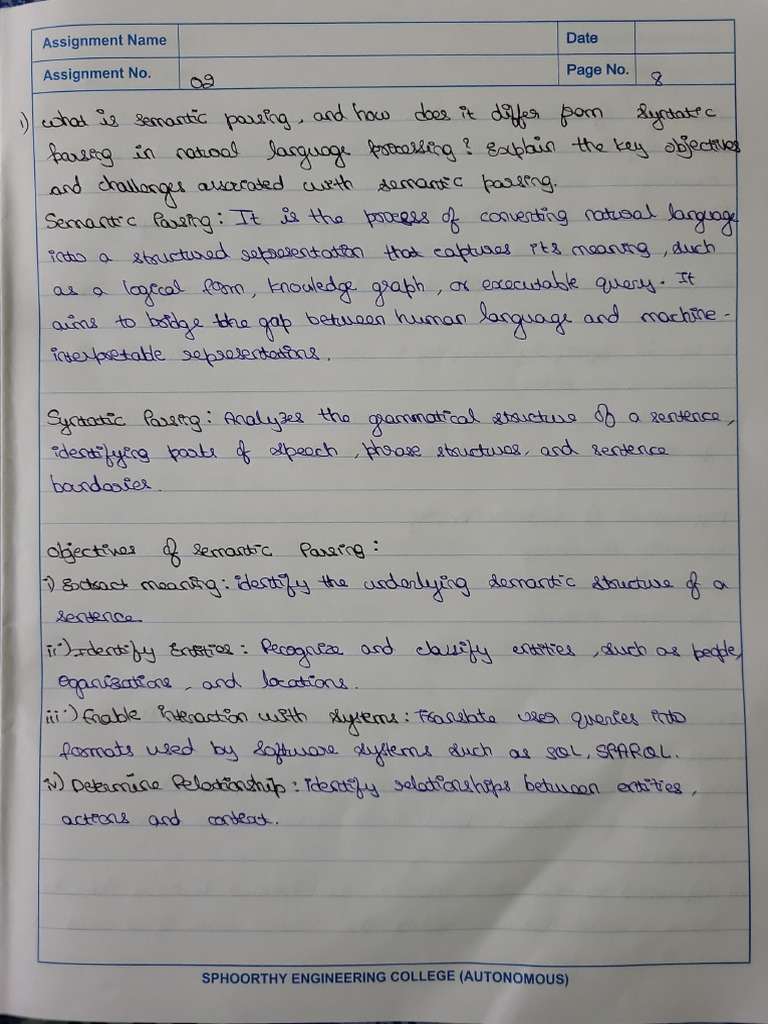 Assignment Name
Date
Assignment No. 02
Page No. 8
1) what is semantic parsing, and how does it differ from Syntatic
Parsing in natural language processing? Explain the key objectives
and challenges associated with semantic parsing.
Semantic Parsing: It is the process of converting natural language
into a structured representation that captures its meaning, such
as a logical form, knowledge graph, or executable query. It
aims to bridge the gap between human language and machine-
interpretable representations.
Syntatic Parsing: Analyzes the grammatical structure of a sentence,
identifying parts of speech, phrase structures, and sentence
bandaries.
Objectives of semantic Parsing:
i) Extract meaning: identify the underlying semantic structure of a
sentence.
ii) Identify Entities: Recognize and classify entities, such as people,
Oganizations, and locations.
iii) Enable interaction with systems: Translate user queries into
formats used by software systems such as SQL, SPARQL.
iv) Determine Relationship: identify relationships between entities,
actions and context.
SPHOORTHY ENGINEERING COLLEGE (AUTONOMOUS)